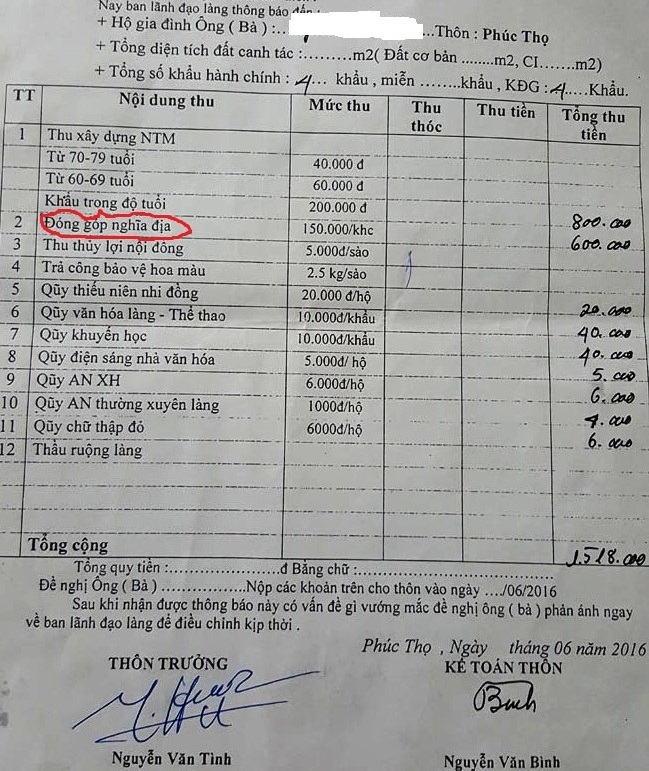 Nay ban lãnh đạo làng thông báo đến :
+ Hộ gia đình Ông ( Bà ) :.. ...Thôn : Phúc Thọ
+ Tổng diện tích đất canh tác :.........m2( Đất cơ bản ........m2, CI.......m2)
+ Tổng số khẩu hành chính : 4... khẩu , miễn ........khẩu , KĐG : 4.....Khẩu.
TT Nội dung thu Mức thu Thu thóc Thu tiền Tổng thu tiền
1 Thu xây dựng NTM
Từ 70-79 tuổi 40.000 đ
Từ 60-69 tuổi 60.000 đ
Khẩu trong độ tuổi 200.000 đ 800.000
2 Đóng góp nghĩa địa 150.000/khc 600.000
3 Thu thủy lợi nội đồng 5.000đ/sào
4 Trả công bảo vệ hoa màu 2.5 kg/sào
5 Qũy thiếu niên nhi đồng 20.000 đ/hộ 20.000
6 Qũy văn hóa làng - Thể thao 10.000đ/khẩu 40.000
7 Qũy khuyến học 10.000đ/khẩu 40.000
8 Qũy điện sáng nhà văn hóa 5.000đ/ hộ 5.000
9 Qũy AN XH 6.000đ/hộ 6.000
10 Qũy AN thường xuyên làng 1000đ/hộ
11 Qũy chữ thập đỏ 6000đ/hộ 6.000
12 Thầu ruộng làng
Tổng cộng 1.518.000
Tổng quy tiền :........................đ Bảng chữ :........................................
Đề nghị Ông ( Bà ) ..................Nộp các khoản trên cho thôn vào ngày ..../06/2016
Sau khi nhận được thông báo này có vấn đề gì vướng mắc đề nghị ông ( bà ) phản ánh ngay
về ban lãnh đạo làng để điều chỉnh kịp thời .
Phúc Thọ , Ngày tháng 06 năm 2016
THÔN TRƯỞNG KẾ TOÁN THÔN
Nguyễn Văn Tình Nguyễn Văn Bình